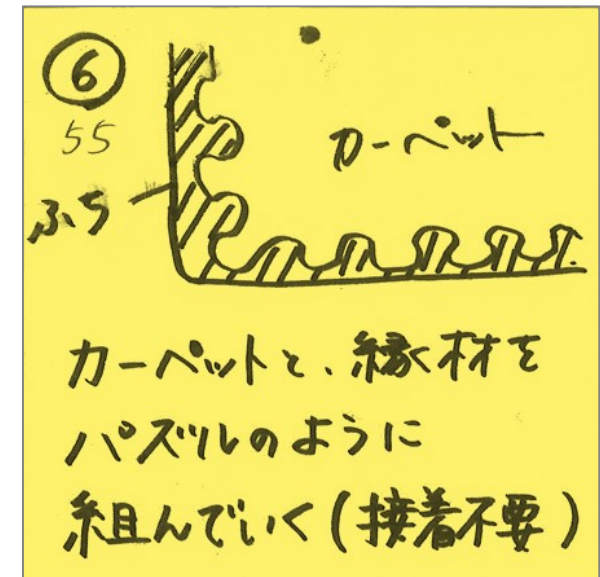 ⑥
55
カーペット
ふち
カーペットと、縁材を
パズルのように
組んでいく(接着不要)